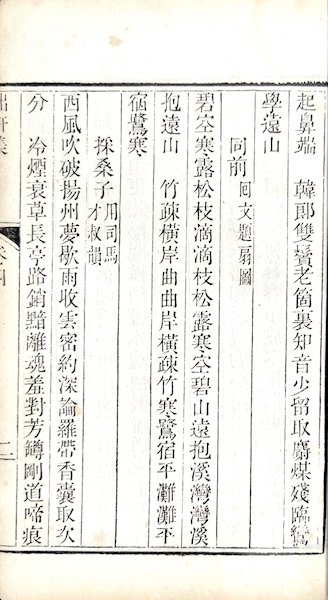 起鼻端　韓郎雙鬢老箇裏知音少留取麝煤殘臨鸞
學遠山
同前　回文題扇圖
碧空寒露松枝滴滴枝松露寒空碧山遠抱溪灣灣溪
抱遠山　竹疎橫岸曲曲岸橫疎竹寒鷺宿平灘灘平
宿鷺寒
採桑子　用司馬才叔韻
西風吹破揚州夢歇雨收雲密約深論羅帶香囊取次
分　冷煙衰草長亭路銷黯離魂羞對芳罇剛道啼痕
二